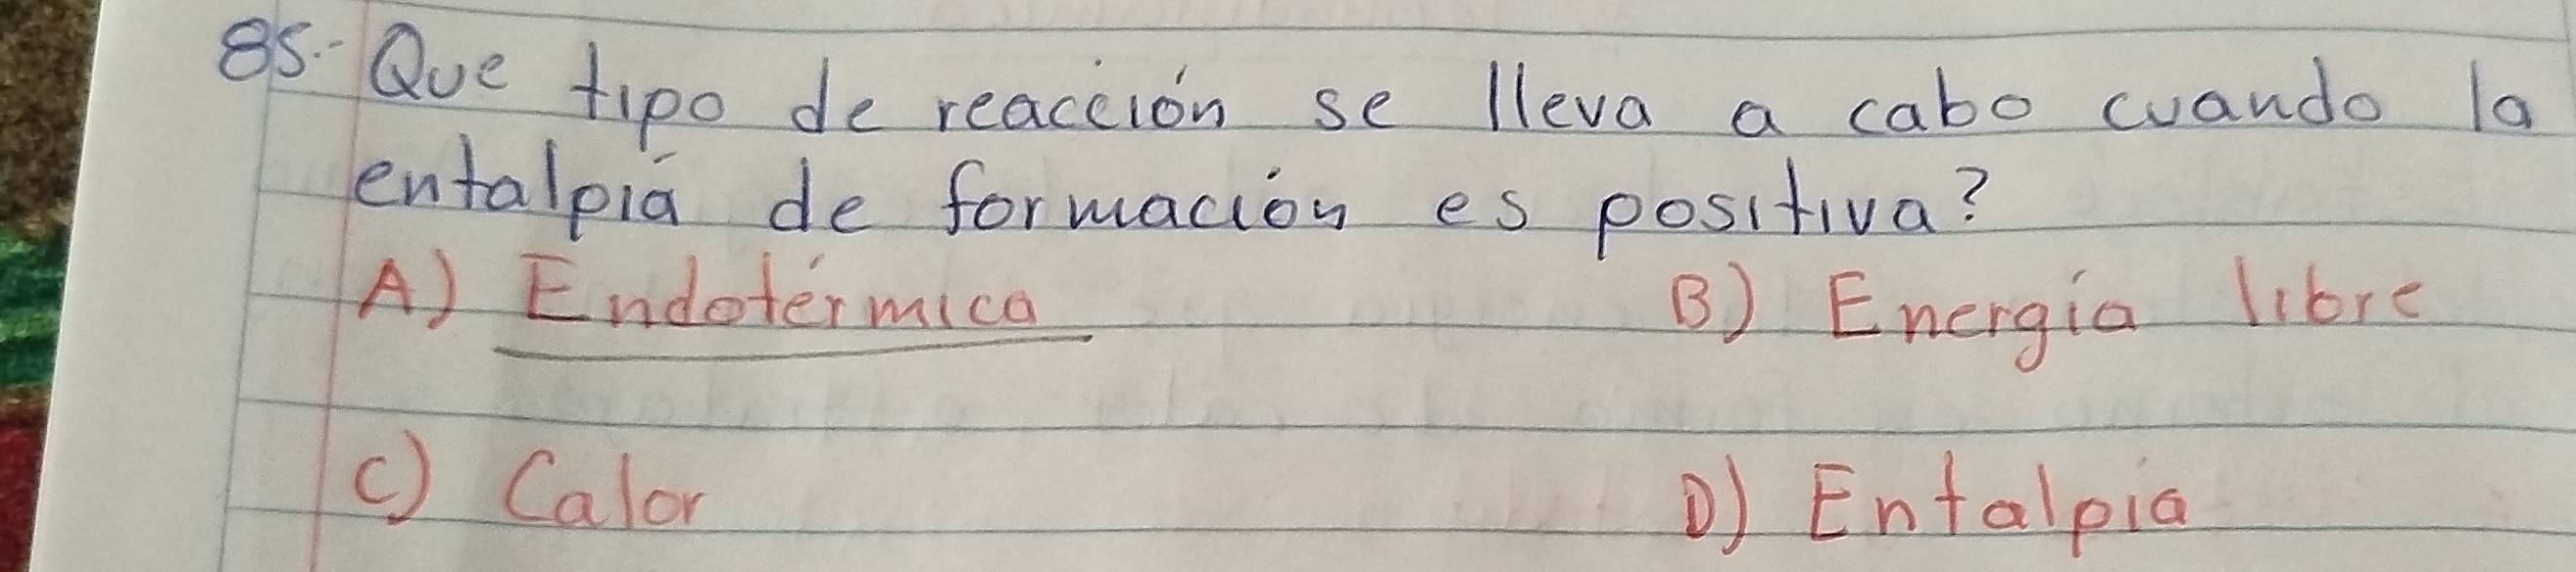 85.- Que tipo de reacción se lleva a cabo cuando la
entalpía de formación es positiva?
A) Endotérmica B) Energía libre
C) Calor D) Entalpía